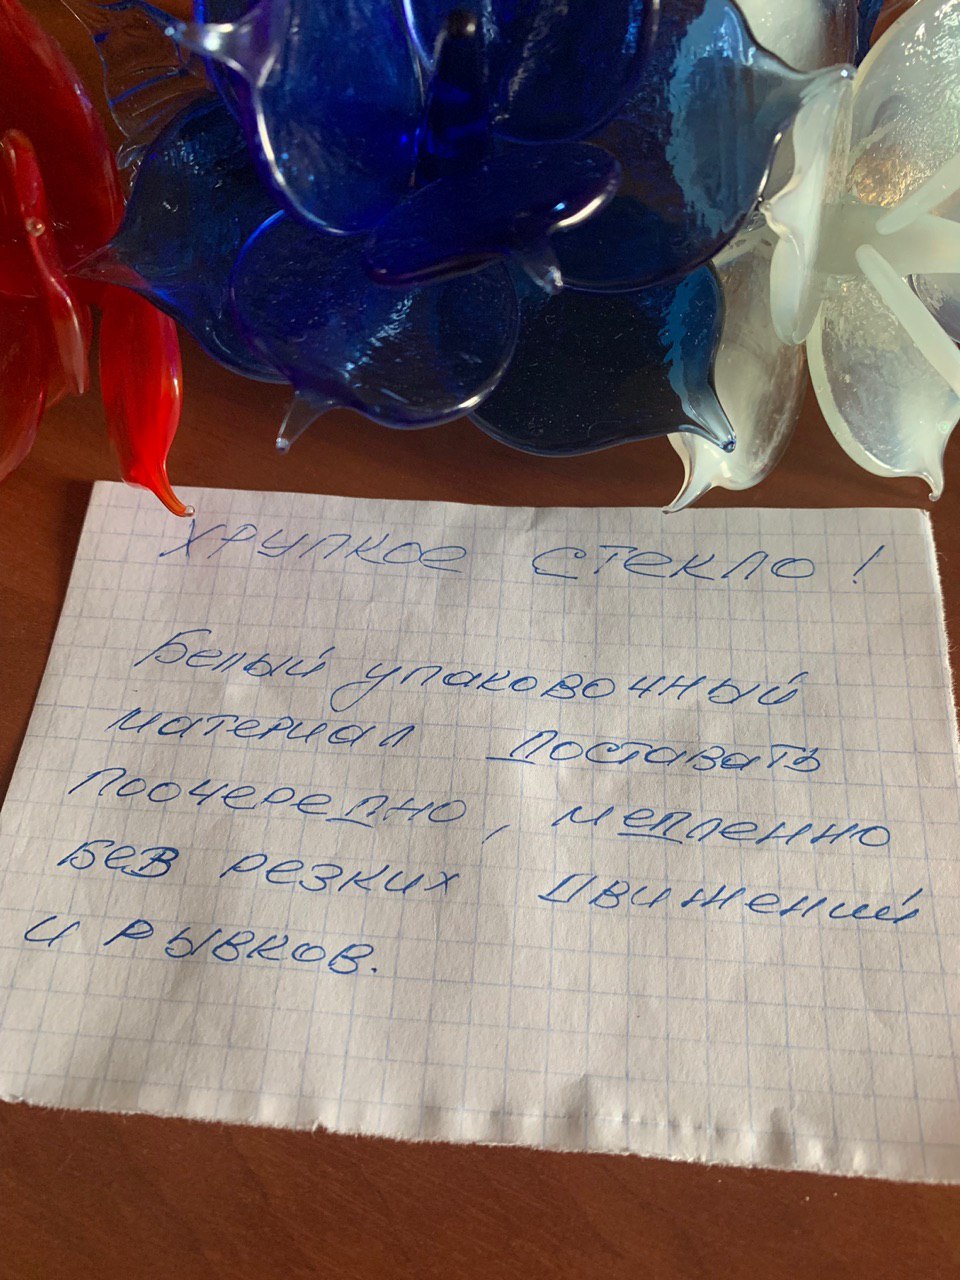 ХРУПКОЕ СТЕКЛО!
Белый упаковочный
материал доставать
поочередно, медленно
без резких движений
и рывков.